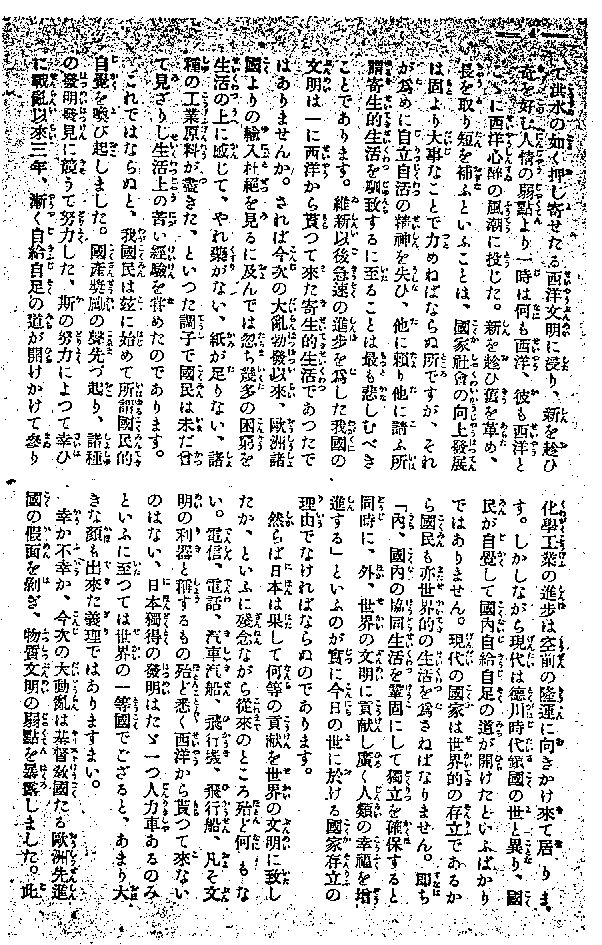 て洪水の如く押し寄せたる西洋文明に浸り、新を趁ひ
奇を好む人情の弱點より一時は何も西洋、彼も西洋と
こゝに西洋心醉の風潮に投じた。新を趁ひ舊を革め、
長を取り短を補ふといふことは、國家社會の向上發展
は固より大事なことで力めねばならぬ所ですが、それ
が爲めに自立自活の精神を失ひ、他に頼り他に請ふ所
謂寄生的生活を馴致するに至ることは最も悲しむべき
ことであります。維新以後急速の進歩を爲した我國の
文明は一に西洋から貰つて來た寄生的生活であつたで
はありませんか。されば今次の大亂勃發以來、歐洲諸
國よりの輸入杜絕を見るに及んでは忽ち幾多の困窮を
生活の上に感じて、やれ藥がない、紙が足りない、諸
種の工業原料が盡きた、といつた調子で國民は未だ曾
て見ざりし生活上の苦い經驗を甞めたのであります。
これではならぬと、我國民は玆に始めて所謂國民的
自覺を喚び起しました。國產奬風の聲先づ起り、諸種
の發明發見に競うて努力した、斯の努力によつて幸ひ
に戰亂以來三年、漸く自給自足の道が開けかけて參り
化學工業の進歩は空前の隆運に向きかけ來て居りま
す。しかしながら現代は德川時代鎖國の世と異り、國
民が自覺して國內自給自足の道が開けたといふばかり
ではありません。現代の國家は世界的の存立であるか
ら國民も亦世界的の生活を爲さねばなりません。卽ち
「內、國內の協同生活を鞏固にして獨立を確保すると
同時に、外、世界の文明に貢獻し廣く人類の幸福を增
進する」といふのが實に今日の世に於ける國家存立の
理由でなければならぬのであります。
然らば日本は果して何等の貢獻を世界の文明に致し
たか、といふに殘念ながら從來のところ殆ど何もな
い。電信、電話、汽車汽船、飛行機、飛行船、凡そ文
明の利器と稱するもの殆ど悉く西洋から貰つて來ない
のはない、日本獨得の發明はたゞ一つ人力車あるのみ
といふに至つては世界の一等國でござると、あまり大
きな顏も出來た義理ではありますまい。
幸か不幸か、今次の大動亂は基督敎國たる歐洲先進
國の假面を剝ぎ、物質文明の弱點を暴露しました。此